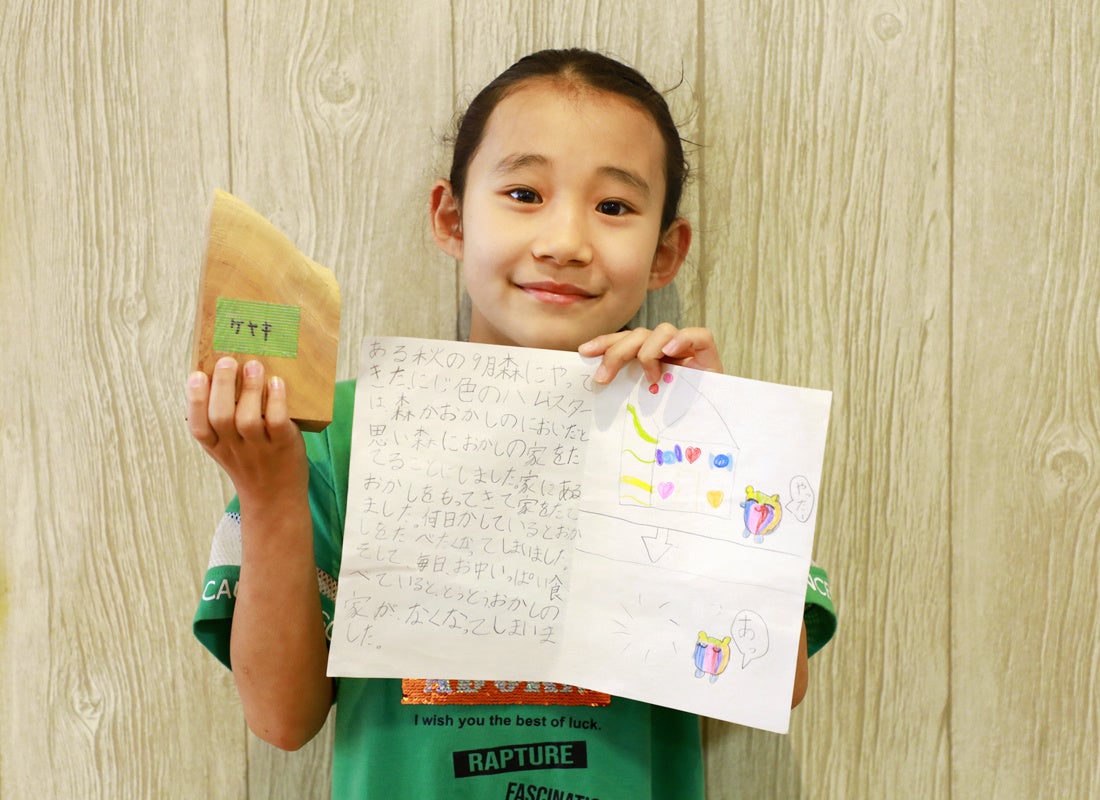 ケヤキ
ある秋の9月森にやって
きた、にじ色のハムスター
は森がおかしのにおいだと
思い森におかしの家をた
てることにしました。家にある
おかしをもってきて家をたて
ました。何日かしているとおか
しをたべたくなってしまいました。
そして、毎日、お中いっぱい食
べていると、とうとうおかしの
家が、なくなってしまいま
した。
やったー
あっ
I wish you the best of luck.
RAPTURE